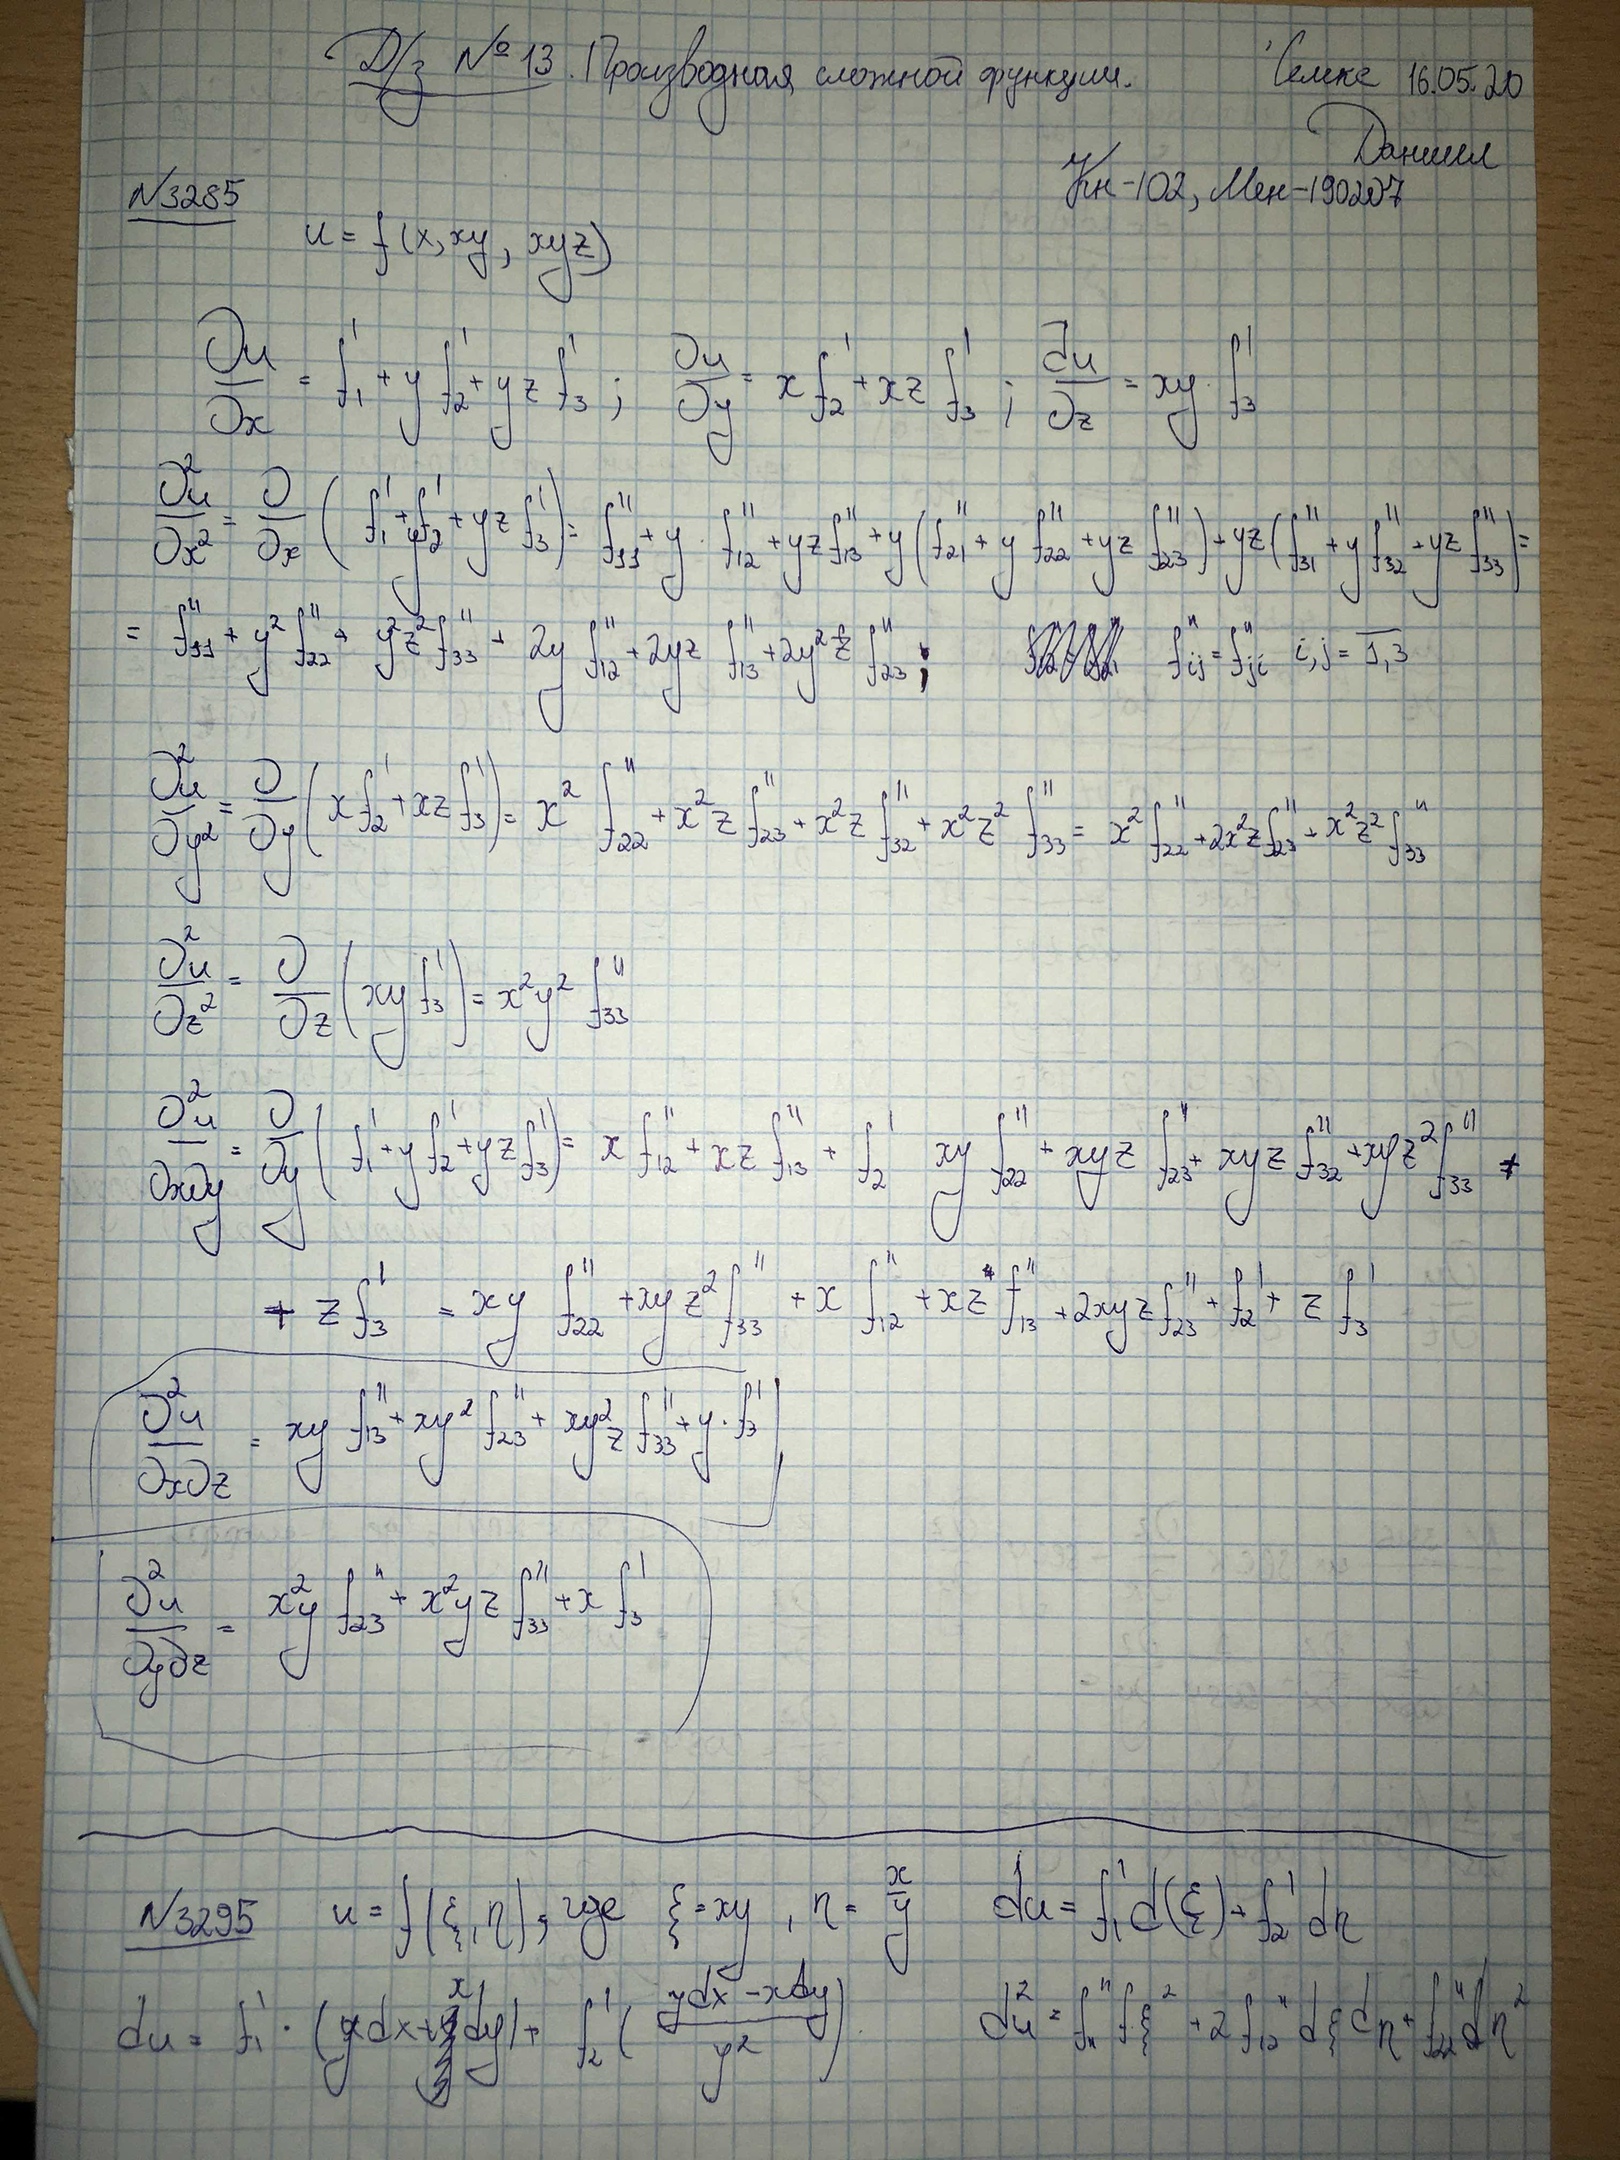 Д/з №13. Производная сложной функции. Семке 16.05.20
Даниил
Кн-102, Мен-190207
N3285
u = f(x, xy, xyz)
∂u/∂x = f₁' + y f₂' + yz f₃' ; ∂u/∂y = x f₂' + xz f₃' ; ∂u/∂z = xy · f₃'
∂²u/∂x² = ∂/∂x (f₁' + y f₂' + yz f₃') = f₁₁'' + y · f₁₂'' + yz f₁₃'' + y(f₂₁'' + y f₂₂'' + yz f₂₃'') + yz(f₃₁'' + y f₃₂'' + yz f₃₃'') =
= f₁₁'' + y² f₂₂'' + y²z² f₃₃'' + 2y f₁₂'' + 2yz f₁₃'' + 2y²z f₂₃'' ; f_ij'' = f_ji'' i,j = 1,3
∂²u/∂y² = ∂/∂y (x f₂' + xz f₃') = x² f₂₂'' + x²z f₂₃'' + x²z f₃₂'' + x²z² f₃₃'' = x² f₂₂'' + 2x²z f₂₃'' + x²z² f₃₃''
∂²u/∂z² = ∂/∂z (xy f₃') = x²y² f₃₃''
∂²u/∂x∂y = ∂/∂y (f₁' + y f₂' + yz f₃') = x f₁₂'' + xz f₁₃'' + f₂' xy f₂₂'' + xyz f₂₃'' + xyz f₃₂'' + xyz² f₃₃'' +
+ z f₃' = xy f₂₂'' + xyz² f₃₃'' + x f₁₂'' + xz f₁₃'' + 2xyz f₂₃'' + f₂' + z f₃'
∂²u/∂x∂z = xy f₁₃'' + xy² f₂₃'' + xy²z f₃₃'' + y · f₃'
∂²u/∂y∂z = x²y f₂₃'' + x²yz f₃₃'' + x f₃'
N3295 u = f(ξ, η), где ξ = xy, η = x/y du = f₁' d(ξ) + f₂' dη
du = f₁' · (ydx + xdy) + f₂' ((ydx − xdy)/y²) d²u = f₁₁'' fξ² + 2 f₁₂'' dξ dη + f₂₂'' dη²